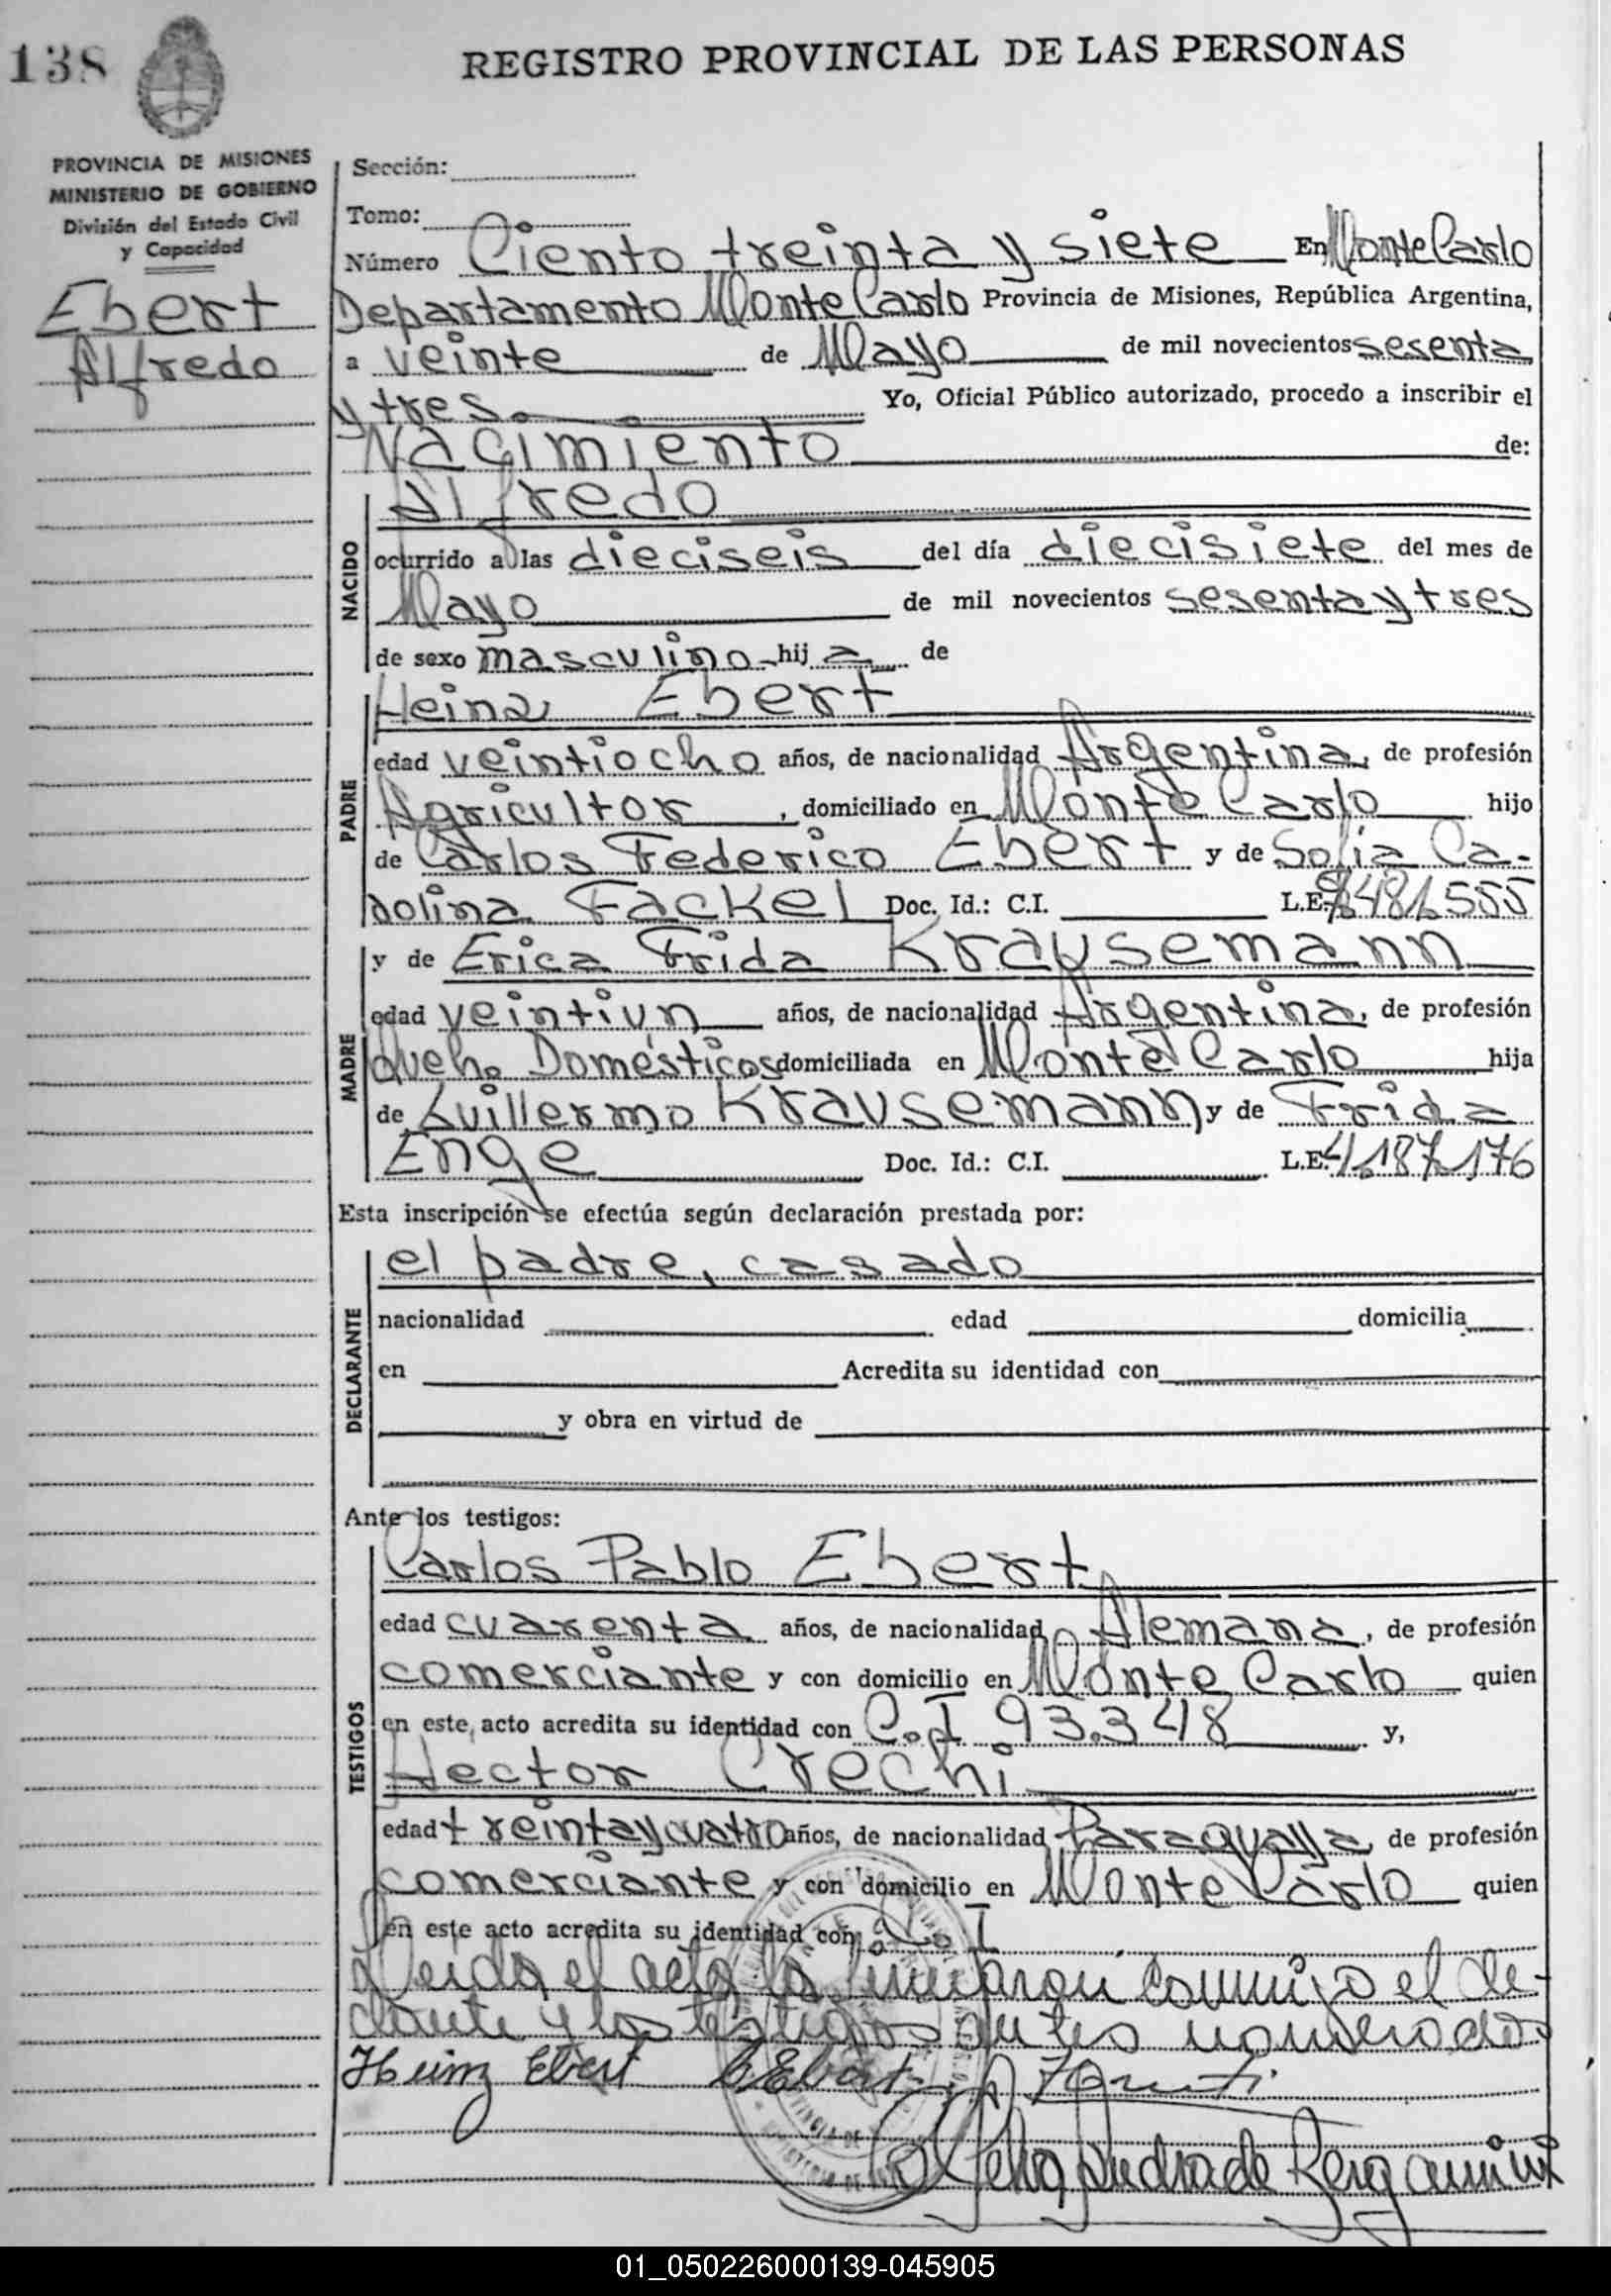 138
REGISTRO PROVINCIAL DE LAS PERSONAS
PROVINCIA DE MISIONES
MINISTERIO DE GOBIERNO
División del Estado Civil
y Capacidad
Ebert
Alfredo
Sección:
Tomo:
Número Ciento treinta y siete En Monte Carlo
Departamento Monte Carlo Provincia de Misiones, República Argentina,
a veinte de Mayo de mil novecientos sesenta
y tres. Yo, Oficial Público autorizado, procedo a inscribir el
Nacimiento de:
NACIDO
Alfredo
ocurrido a las dieciseis del día diecisiete del mes de
Mayo de mil novecientos sesenta y tres
de sexo masculino hij de
PADRE
Heinz Ebert
edad veintiocho años, de nacionalidad Argentina, de profesión
Agricultor, domiciliado en Monte Carlo hijo
de Carlos Federico Ebert y de Sofia Ca-
rolina Fackel Doc. Id.: C.I. L.E. 481.555
MADRE
y de Erica Frida Krausemann
edad veintiun años, de nacionalidad Argentina, de profesión
Queh. Domésticos domiciliada en Monte Carlo hija
de Guillermo Krausemann y de Frida
Enge Doc. Id.: C.I. L.E. 4.187.176
Esta inscripción se efectúa según declaración prestada por:
DECLARANTE
el padre, casado
nacionalidad edad domicilia
en Acredita su identidad con
y obra en virtud de
Ante los testigos:
TESTIGOS
Carlos Pablo Ebert
edad cuarenta años, de nacionalidad Alemana, de profesión
comerciante y con domicilio en Monte Carlo quien
en este acto acredita su identidad con C.I 93.348 y,
Hector Crechi
edad treinta y cuatro años, de nacionalidad Paraguaya, de profesión
comerciante y con domicilio en Monte Carlo quien
en este acto acredita su identidad con: C.I
Leida el acta la firmaron conmigo el de-
clante y los testigos antes nombrados
Heinz Ebert C. Ebert
Andrade Bergamini
01_050226000139-045905